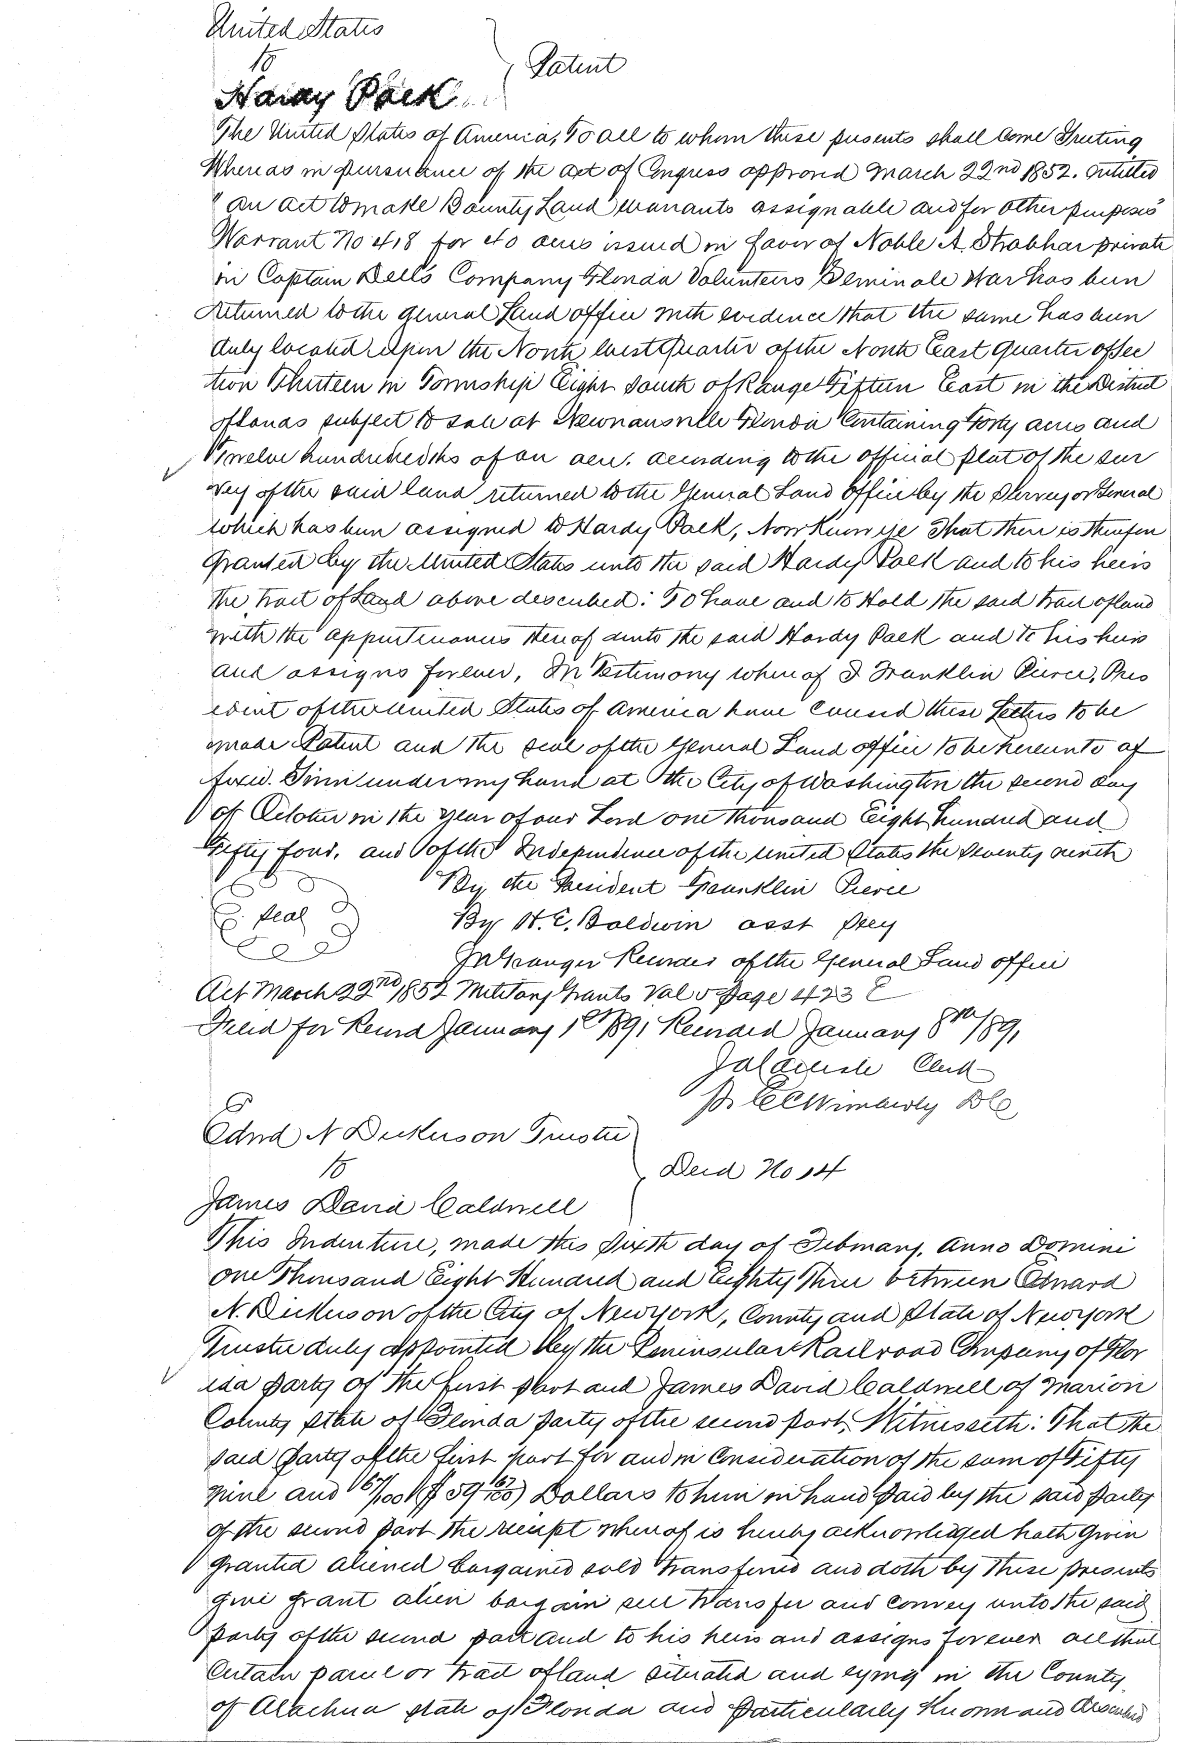 United States
to
Patent
Hardy Paek
The United States of America, To all to whom these presents shall come Greeting
Whereas in pursuance of the act of Congress approved March 22nd 1852. entitled
"an act to make Bounty Land Warrants assignable and for other purposes"
Warrant No 418 for 40 acres issued in favor of Noble A. Strabhar private
in Captain Dell's Company Florida Volunteers Seminole War has been
returned to the General Land office with evidence that the same has been
duly located upon the North West Quarter of the North East Quarter of Sec
tion Thirteen in Township Eight South of Range Fifteen East in the District
of Lands subject to sale at Newnansville Florida Containing Forty acres and
Twelve hundredths of an acre. according to the official plat of the sur
vey of the said land returned to the General Land Office by the Surveyor General
which has been assigned to Hardy Paek, Now Know ye That there is therefore
Granted by the United States unto the said Hardy Paek and to his heirs
the tract of Land above described: To have and to Hold the said tract of land
with the appurtenances thereof unto the said Hardy Paek and to his heirs
and assigns forever, In Testimony whereof I Franklin Pierce, Pres
ident of the United States of America have caused these Letters to be
made Patent and the seal of the General Land office to be hereunto af
fixed. Given under my hand at the City of Washington the second day
of October in the Year of our Lord one thousand Eight hundred and
Fifty four. and of the Independence of the United States the seventy ninth
By the President Franklin Pierce
Seal
By H. E. Baldwin asst Secy
J N Granger Recorder of the General Land office
Act March 22nd 1852 Military Grants Vol 5 page 423 E
Filed for Record January 1st 1891 Recorded January 8th 1891
J A Carlisle Clerk
Pr E C Wimberly D C
Edwd N Dickerson Trustee
to
Deed No 14
James David Caldwell
This Indenture, made this sixth day of February, Anno Domini
one Thousand Eight Hundred and Eighty Three between Edward
N. Dickerson of the City of New York, County and State of New York
Trustee duly appointed by the Peninsular Railroad Company of Flor
ida party of the first part and James David Caldwell of Marion
County State of Florida party of the second part, Witnesseth: That the
said party of the first part for and in Consideration of the sum of Fifty
nine and 67/100 ($59 67/100) Dollars to him in hand paid by the said party
of the second part the receipt whereof is hereby acknowledged hath given
granted aliened bargained sold transferred and doth by these presents
give grant alien bargain sell transfer and convey unto the said
party of the second part and to his heirs and assigns forever all that
Certain parcel or tract of land situated and lying in the County
of Alachua state of Florida and particularly Known and described